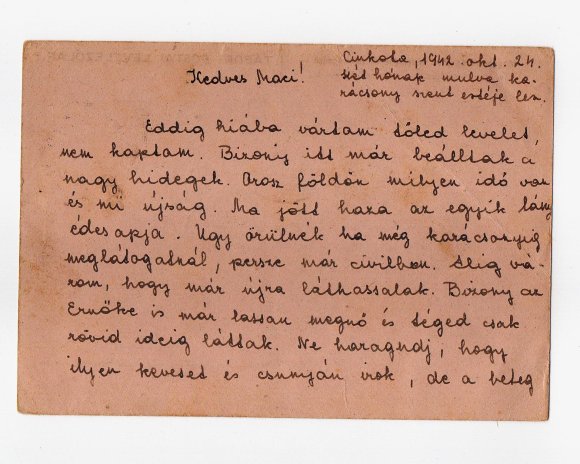 Cinkota, 1942. okt. 24.
Két hónak mulva ka-
rácsony szent estéje lesz.
Kedves Maci!
Eddig hiába vártam tőled levelet,
nem kaptam. Bizony itt már beálltak a
nagy hidegek. Orosz földön milyen idő van
és mi újság. Ma jött haza az egyik lány
édesapja. Ugy örülnék ha még karácsonyig
meglátogatnál, persze már civilben. Alig vá-
rom, hogy már újra láthassalak. Bizony az
Ernőke is már lassan megnő és téged csak
rövid ideig láttak. Ne haragudj, hogy
ilyen keveset és csunyán irok, de a beteg